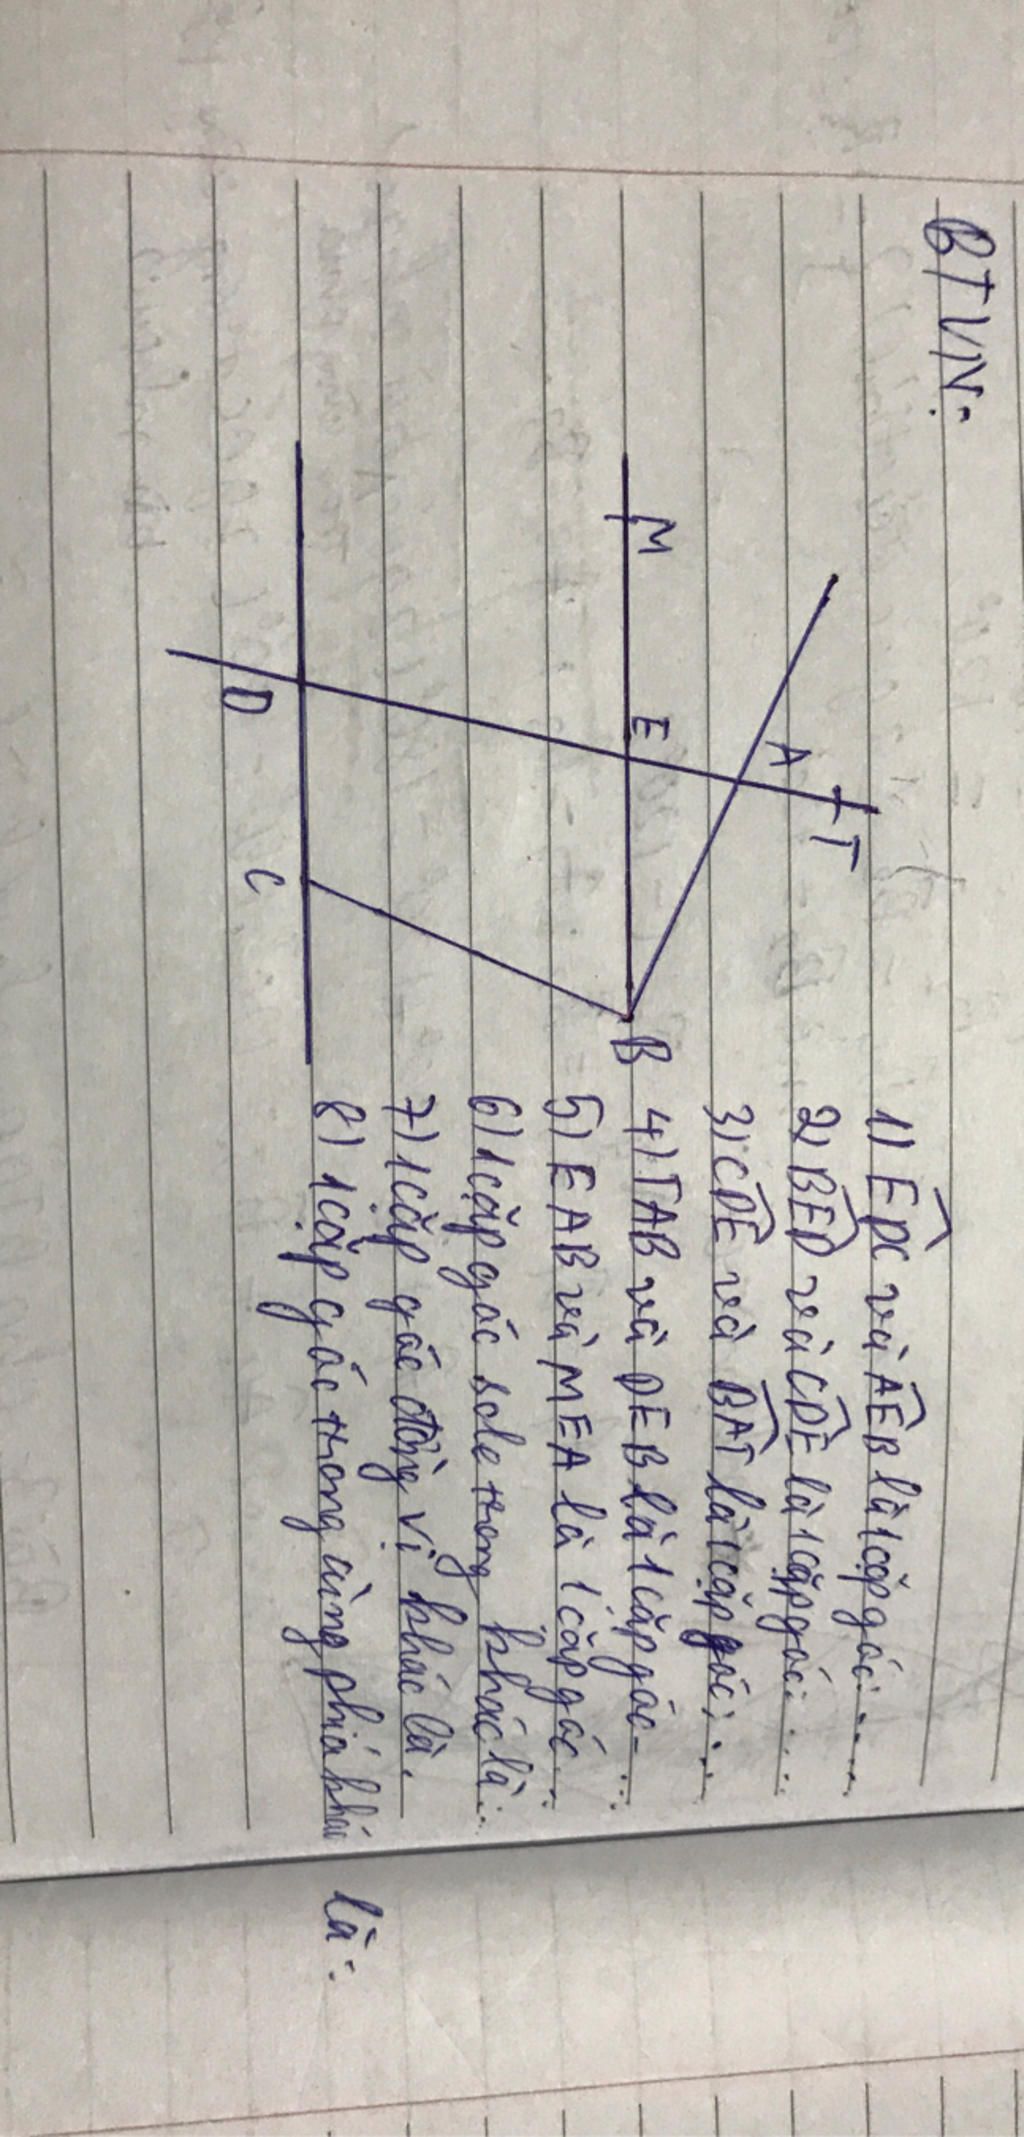 BTVN:
M
E
A
T
D
C
B
1) EDC và AEB là 1 cặp góc: ....
2) BED và CDE là 1 cặp góc: ...
3) CDE và BAT là 1 cặp góc: ...
4) TAB và DEB là 1 cặp góc ...
5) EAB và MEA là 1 cặp góc ...
6) 1 cặp góc sole trong khác là: ..
7) 1 cặp góc đồng vị khác là.
8) 1 cặp góc trong cùng phía khác là: